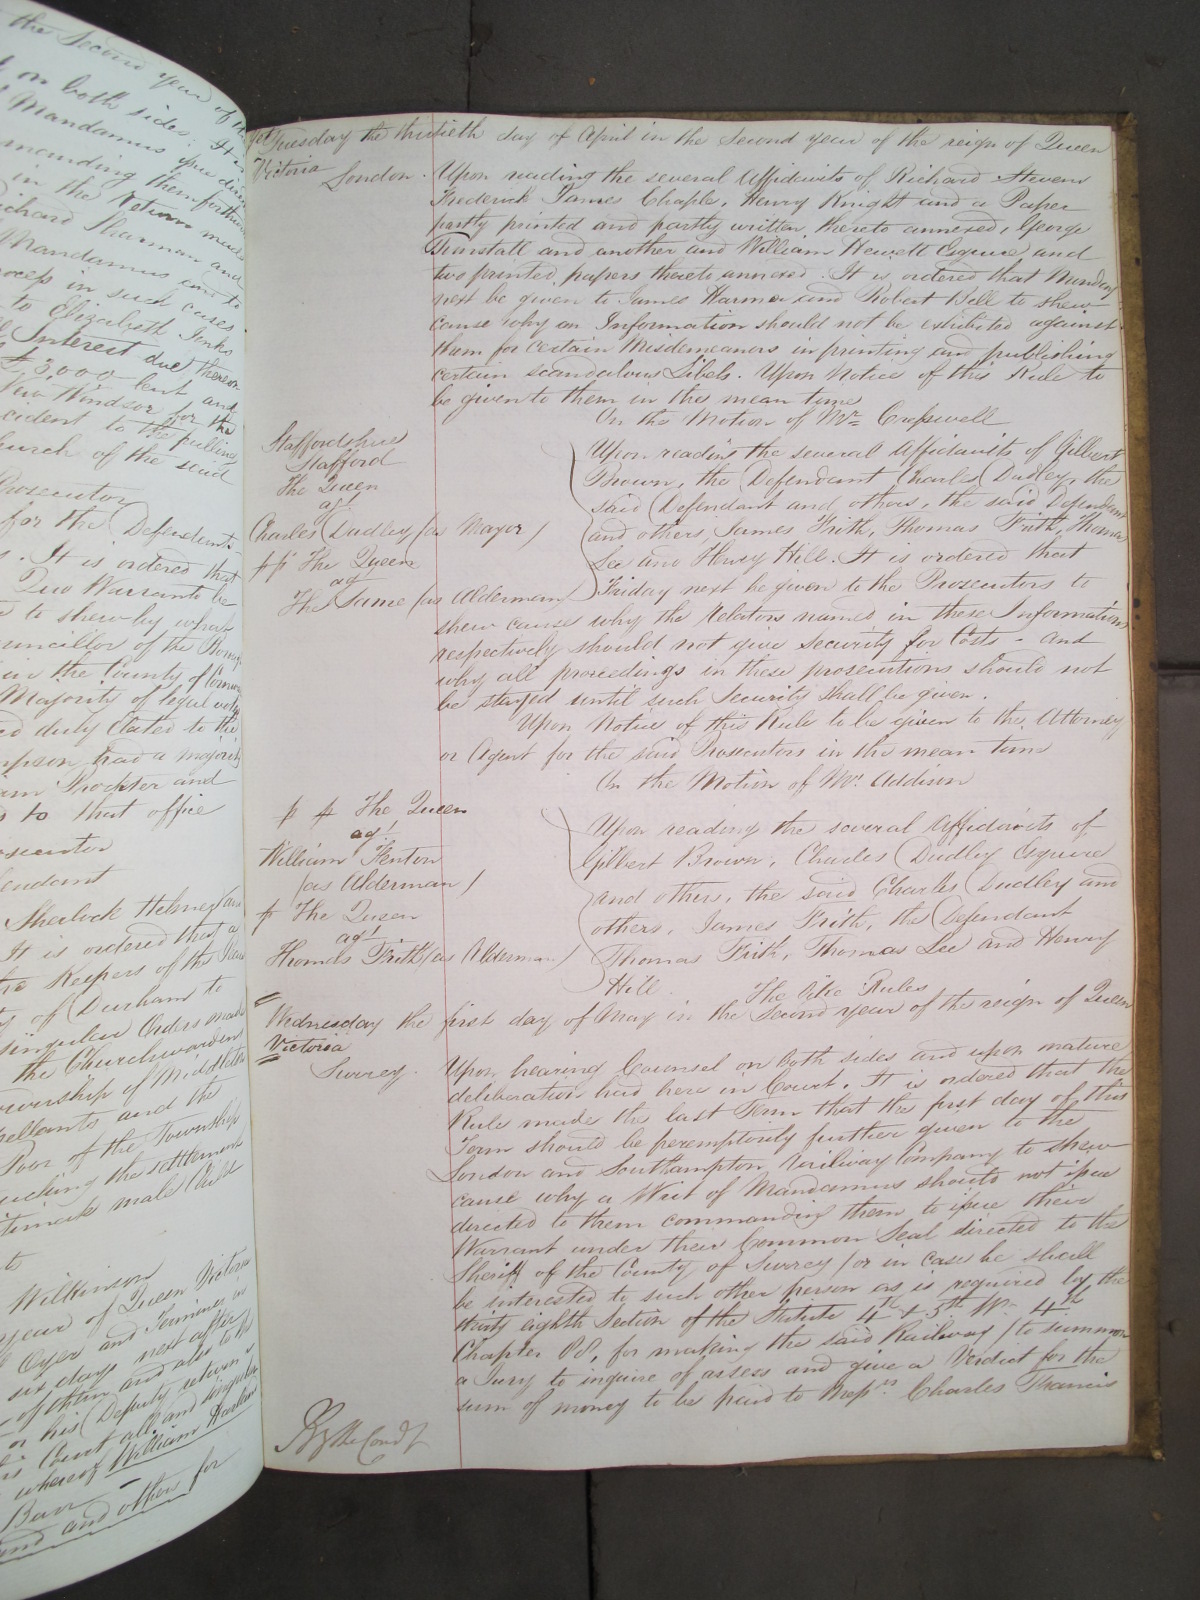 the Second year of the
on both sides. It is
Mandamus issue directed
commanding them forthwith
in the Return made
Richard Sharman and
Mandamus and to
process in such cases.
to Elizabeth Jenks
Interest due thereon
£3,000 lent and
New Windsor for the
incident to the pulling
Church of the said
Prosecutor
for the Defendants
It is ordered that
Quo Warranto be
to shew by what
Councillor of the
in the County of
Majority of legal votes
duly elected to the
had a majority
Prockter and
to that office
Prosecutor
Defendant
Sherlock Helmes (as
It is ordered that a
the Keepers of the Peace
of Durham to
singular Orders made
the Churchwardens
Township of Middleton
Appellants and the
Poor of the Township
touching the settlement
male Child
Wilkinson
year of Queen Victoria
Oyer and Terminer in
six days next after
of them and also to
or his Deputy return
Court all and singular
whereof William
Barr
and another for
Yet Tuesday the thirtieth day of April in the Second year of the reign of Queen
Victoria
London. Upon reading the several Affidavits of Richard Stevens
Frederick James Chaple, Henry Knight and a Paper
partly printed and partly written thereto annexed, George
Tunstall and another and William Hewett Esquire and
two printed papers thereto annexed. It is ordered that Monday
next be given to James Harmer and Robert Bell to shew
cause why an Information should not be exhibited against
them for certain Misdemeanors in printing and publishing
certain scandalous Libels. Upon Notice of this Rule to
be given to them in the mean time
On the Motion of Mr. Cresswell
Staffordshire
Stafford
The Queen
agt
Charles Dudley (as Mayor)
pp The Queen
agt
The Same (as Alderman)
Upon reading the several Affidavits of Gilbert
Brown, the Defendant Charles Dudley, the
said Defendant and others, the said Defendant
and others, James Frith, Thomas Frith, Thomas
Lee and Henry Hill. It is ordered that
Friday next be given to the Prosecutors to
shew cause why the Relators named in these Informations
respectively should not give security for Costs - and
why all proceedings in these prosecutions should not
be stayed until such Security shall be given.
Upon Notice of this Rule to be given to the Attorney
or Agent for the said Prosecutors in the mean time
On the Motion of Mr. Addison
p p The Queen
agt
William Fenton
(as Alderman)
p The Queen
agt
Thomas Frith (as Alderman)
Upon reading the several Affidavits of
Gilbert Brown, Charles Dudley Esquire
and others, the said Charles Dudley and
others, James Frith, the Defendant
Thomas Frith, Thomas Lee and Henry
Hill. The like Rules
Wednesday the first day of May in the Second year of the reign of Queen
Victoria
Surrey. Upon hearing Counsel on both sides and upon mature
deliberation had here in Court. It is ordered that the
Rule made the last Term that the first day of this
Term should be peremptorily further given to the
London and Southampton Railway Company to shew
cause why a Writ of Mandamus should not issue
directed to them commanding them to issue their
Warrant under their Common Seal directed to the
Sheriff of the County of Surrey (or in case he shall
be interested to such other person as is required by the
thirty eighth Section of the Statute 4th & 5th Wm. 4th
Chapter 88, for making the said Railway) to summon
a Jury to inquire of assess and give a Verdict for the
sum of money to be paid to Messrs Charles Francis
By the Court